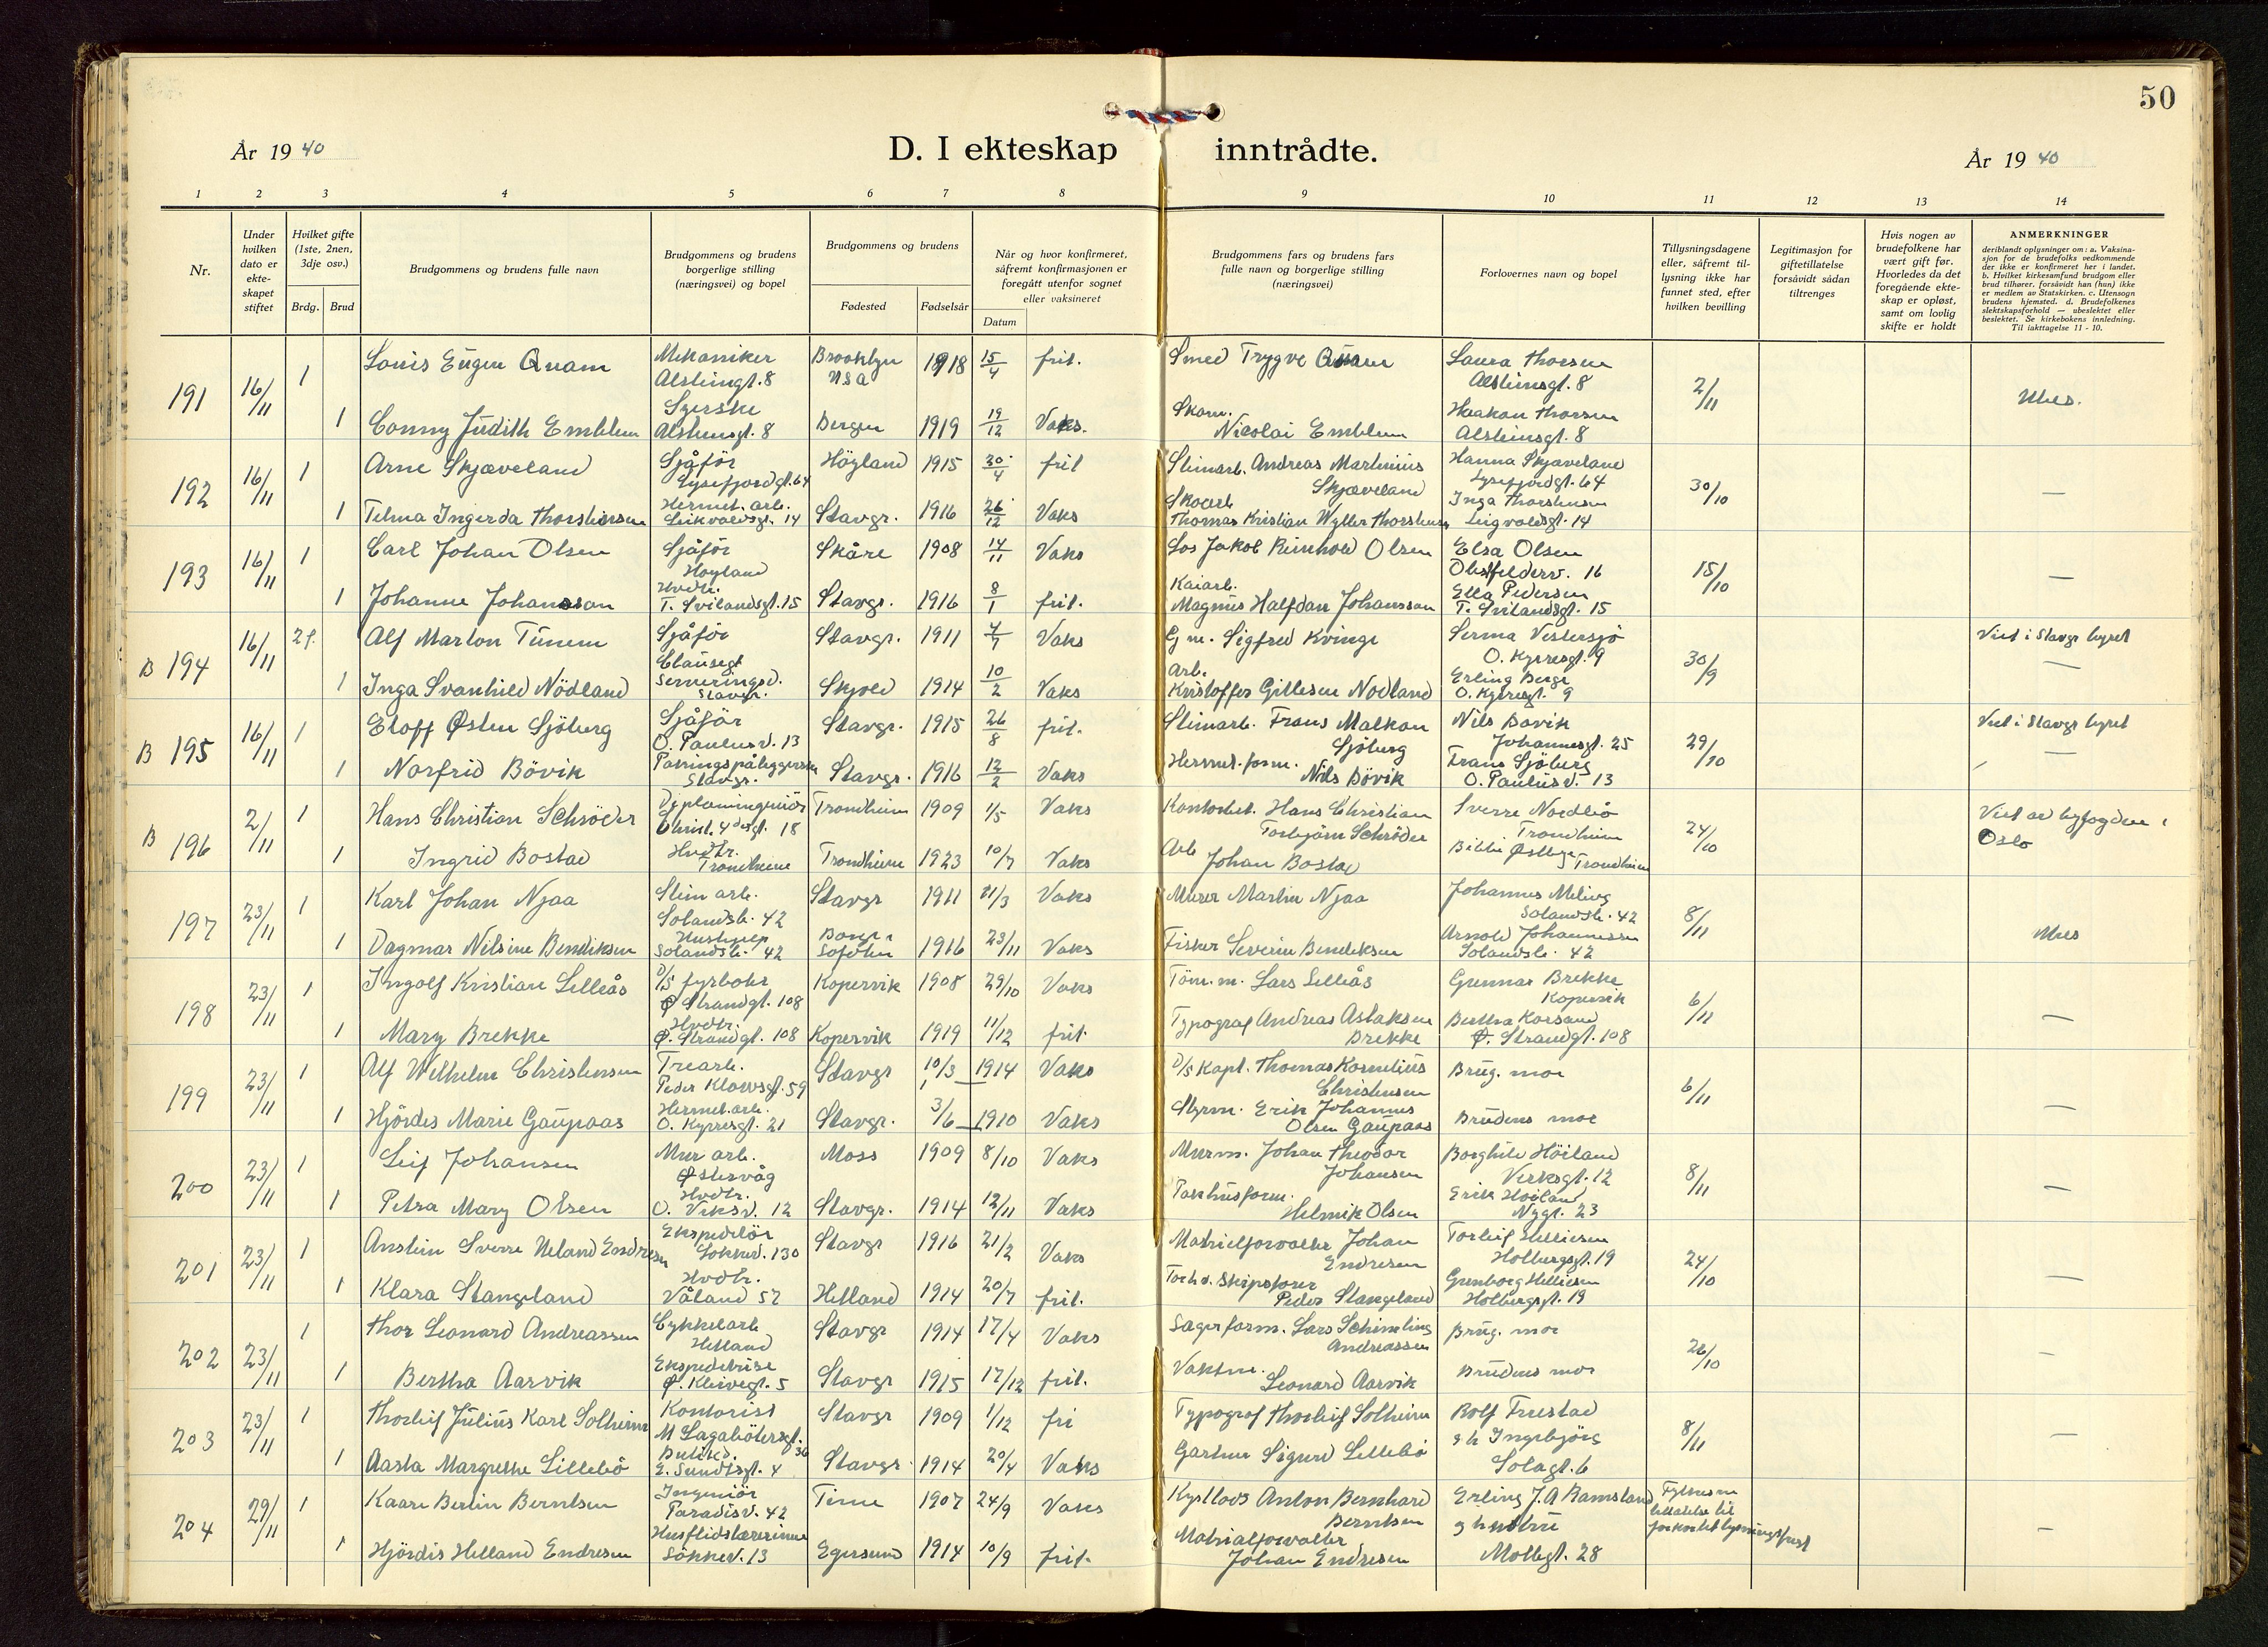 50
År 19 40
D. I ekteskap inntrådte.
År 19 40
1 2 3 4 5 6 7 8 9 10 11 12 13 14
Nr.
Under hvilken dato er ekte-skapet stiftet
Hvilket gifte (1ste, 2nen, 3dje osv.)
Brdg. Brud
Brudgommens og brudens fulle navn
Brudgommens og brudens borgerlige stilling (næringsvei) og bopel
Brudgommens og brudens
Fødested Fødselsår Datum
Når og hvor konfirmeret, såfremt konfirmasjonen er foregått utenfor sognet eller vaksineret
Brudgommens fars og brudens fars fulle navn og borgerlige stilling (næringsvei)
Forlovernes navn og bopel
Tillysningsdagene eller, såfremt til-lysning ikke har funnet sted, efter hvilken bevilling
Legitimasjon for giftetillatelse forsåvidt sådan tiltrenges
Hvis nogen av brudefolkene har vært gift før. Hvorledes da det foregående ekte-skap er opløst, samt om lovlig skifte er holdt
ANMERKNINGER
deriblandt oplysninger om: a. Vaksina-sjon for de brudefolks vedkommende der ikke er konfirmeret her i landet. b. Hvilket kirkesamfund brudgom eller brud tilhører, forsåvidt han (hun) ikke er medlem av Statskirken. c. Utensogn brudens hjemsted. d. Brudefolkenes slektskapsforhold — ubeslektet eller beslektet. Se kirkebokens innledning. Til iakttagelse 11 - 10.
191 16/11 1 Louis Eugen Quam Mekaniker Alsteinsgt. 8 Brooklyn USA 1918 15/4 frit. Smed Trygve Quam Laura Thorsen Alsteinsgt. 8 2/11 Ubes.
1 Conny Judith Emblem Syerske Alsteinsgt. 8 Bergen 1919 19/12 Vaks. Skom. Nicolai Emblem Haakon Thorsen Alsteinsgt. 8
192 16/11 1 Arne Skjæveland Sjåför Lysefjordgt. 64 Höyland 1915 30/4 frit Stenarb. Andreas Martinius Skjæveland Hanna Skjæveland Lysefjordgt. 64 30/10 —
1 Telma Ingerda Thorstensen Hermet. arb. Leikvoldsgt. 14 Stavgr. 1916 26/12 Vaks Skoarb Thomas Kristian Wyller Thorstensen Inga Thorstensen Leigvoldsgt. 14
193 16/11 1 Carl Johan Olsen Sjåför Høyland Skåre 1908 14/11 Vaks Los Jakob Reinhold Olsen Elsa Olsen Obstfelderv. 16 15/10 —
1 Johanne Johansson Hvdtr. T. Svilandsgt. 15 Stavgr. 1916 8/1 frit. Kaiarb. Magnus Halfdan Johansson Ella Pedersen T. Svilandsgt. 15
B 194 16/11 2f. Alf Marton Tunem Sjåför Clausegt Stavgr. 1911 4/7 Vaks G m. Sigfred Kvinge Serma Vestersjö O. Kyrresgt. 9 30/9 Viet i Stavgr byret —
1 Inga Svanhild Nödland Serveringsd. Stavgr. Skjold 1914 10/2 Vaks Arb. Kristoffer Gillesen Nodland Erling Berge O. Kyrresgt. 9
B 195 16/11 1 Eloff Østen Sjöberg Sjåför O. Paulusv. 13 Stavgr. 1915 26/8 frit. Stenarb. Frans Malkon Sjöberg Nils Bovik Johannesgt. 25 29/10 Viet i Stavgr byret —
1 Norfrid Bövik Pakningspåleggerske Stavgr. Stavgr. 1916 12/2 Vaks Hermet. form. Nils Bövik Frans Sjöberg O. Paulusv. 13
B 196 2/11 1 Hans Christian Schröder Diplomingeniör Christ. 4 des gt. 18 Trondheim 1909 1/5 Vaks Kontorbet. Hans Christian Torbjörn Schröder Sverre Nordbö Trondheim 24/10 Viet av byfogden i Oslo
1 Ingrid Bostad Hvdtr. Trondheim Trondheim 1923 10/7 Vaks Arb Johan Bostad Bibbi Østbye Trondheim
197 23/11 1 Karl Johan Njaa Sten arb. Solandsb. 42 Stavgr 1911 21/3 Vaks Murer Martin Njaa Johannes Meling Solandsb. 42 8/11 Ubes
1 Dagmar Nilsine Bendiksen Hushjelp Solandsb. 42 1916 23/11 Vaks Fisker Severin Bendiksen Arnold Johannessen Solandsb. 42
198 23/11 1 Ingolf Kristian Lilleås D/S fyrboter Ø Strandgt. 108 Kopervik 1908 29/10 Vaks Töm. m. Lars Lilleås Gunnar Brekke Kopervik 6/11 —
1 Mary Brekke Hvdtr. Ø. Strandgt. 108 Kopervik 1919 11/12 frit Typograf Andreas Aslaksen Brekke Bertha Korsand Ø. Strandgt. 108
199 23/11 1 Alf Wilhelm Christensen Trearb. Peder Klowsgt. 59 Stavgr 10/3 1914 Vaks D/S Kapt. Thomas Kornelius Christensen Brug. mor 6/11 —
1 Hjördis Marie Gaupaas Hermet. arb. O. Kyrresgt. 21 Stavgr. 3/6 1910 Vaks Styrm. Erik Johannes Olsen Gaupaas Brudens mor
200 23/11 1 Leif Johansen Mur arb. Østervåg Moss 1909 8/10 Vaks Murm. Johan Theodor Johansen Borghild Höiland Verksgt. 12 8/11 —
1 Petra Mary Olsen Hvdtr. O. Veksv. 12 Stavgr. 1914 12/11 Vaks Pakhusform. Helmik Olsen Erik Hoiland Nygt. 23
201 23/11 1 Anstein Sverre Ueland Endresen Ekspeditör Sokkev. 130 Stavgr 1916 21/2 Vaks Matrielforvalter Johan Endresen Torleif Helliesen Holbergsgt. 19 24/10 —
1 Klara Stangeland Hvdtr. Våland 52 Hetland 1914 20/7 frit. Torhv. Skipsforer Peder Stangeland Gunborg Helliesen Holbergsgt. 19
202 23/11 1 Thor Leonard Andreassen Cykkelarb Hetland Stavgr 1914 17/4 Vaks Lagerform. Lars Schimling Andreassen Brug. mor 26/10 —
1 Bertha Aarvik Ekspeditrise Ø. Kleivegt. 5 Stavgr 1915 17/12 frit. Vaktm. Leonard Aarvik Brudens mor
203 23/11 1 Thorleif Julius Karl Solheim Kontorist M Lagabötersgt. 36 Stavgr 1909 1/12 fri Typograf Thorleif Solheim Rolf Fristad g h Ingebjörg Solagt. 6 8/11 —
1 Aasta Margrethe Lillebö E. Sundtsgt. 4 Stavgr 1914 20/4 Vaks Gartner Sigurd Lillebö
204 29/11 1 Kaare Bertin Berntsen Ingeniör Paradisv. 42 Time 1907 24/9 Vaks Kystlods Anton Bernhard Berntsen Erling J. A Ramsland g hustru Mollegt. 28 Fylkesm tillatelse til forkortet lysningsfrist —
1 Hjördis Helland Endresen Husflidslærerinne Sökkev. 13 Egersund 1914 10/9 frit. Matrialforvalter Johan Endresen